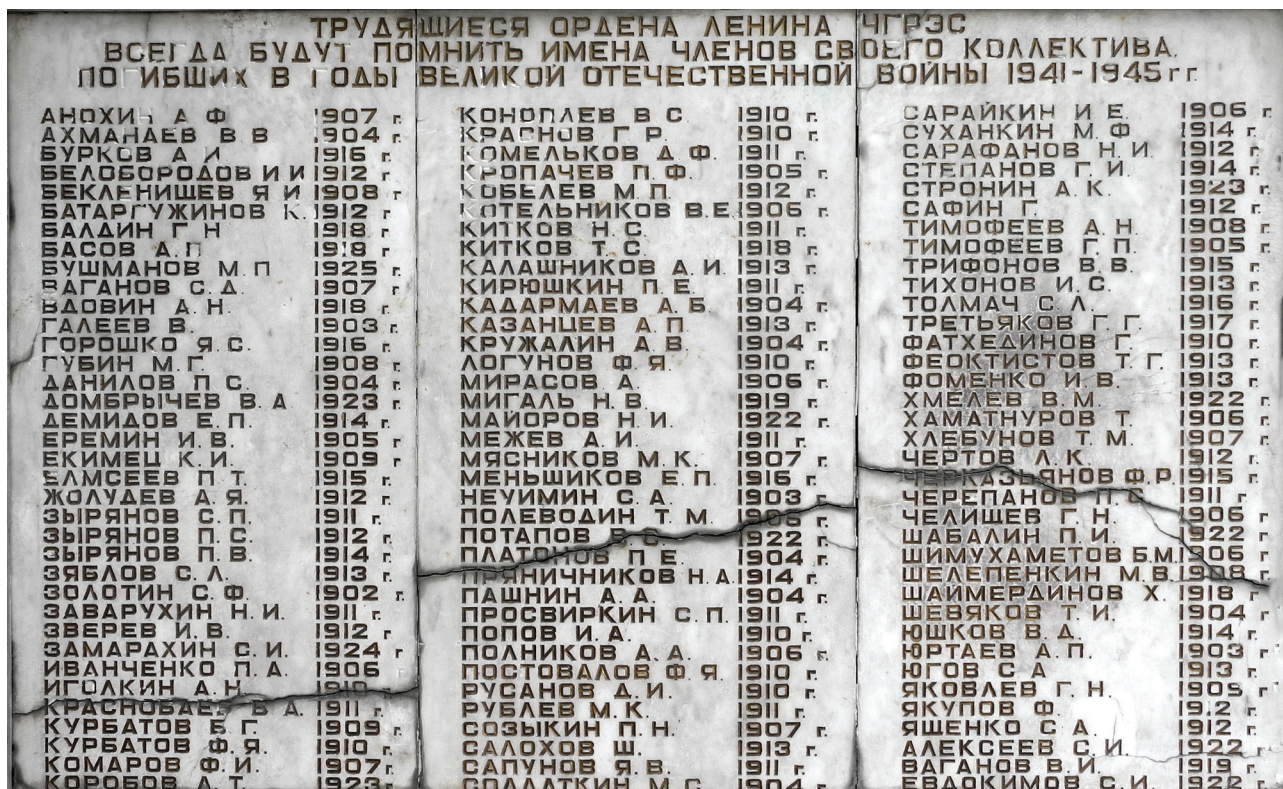 ТРУДЯЩИЕСЯ ОРДЕНА ЛЕНИНА ЧГРЭС
ВСЕГДА БУДУТ ПОМНИТЬ ИМЕНА ЧЛЕНОВ СВОЕГО КОЛЛЕКТИВА.
ПОГИБШИХ В ГОДЫ ВЕЛИКОЙ ОТЕЧЕСТВЕННОЙ ВОЙНЫ 1941-1945 гг.
АНОХИН А Ф 1907 г.
АХМАНАЕВ В В 1904 г.
БУРКОВ А И 1916 г.
БЕЛОБОРОДОВ И И 1912 г.
БЕКЛЕНИЩЕВ Я И 1908 г.
БАТАРГУЖИНОВ К. 1912 г.
БАЛДИН Г Н 1918 г.
БАСОВ А.П 1918 г.
БУШМАНОВ М П 1925 г.
ВАГАНОВ С.Д. 1907 г.
ВДОВИН А.Н. 1918 г.
ГАЛЕЕВ В. 1903 г.
ГОРОШКО Я.С. 1916 г.
ГУБИН М.Г. 1908 г.
ДАНИЛОВ П С. 1904 г.
ДОМБРЫЧЕВ В.А 1923 г.
ДЕМИДОВ Е.П. 1914 г.
ЕРЕМИН И.В. 1905 г
ЕКИМЕЦ К.И. 1909 г.
ЕЛМСЕЕВ П Т. 1915 г.
ЖОЛУДЕВ А Я. 1912 г.
ЗЫРЯНОВ С.П. 1911 г.
ЗЫРЯНОВ П.С. 1912 г.
ЗЫРЯНОВ П.В. 1914 г.
ЗЯБЛОВ С.Л. 1913 г.
ЗОЛОТИН С.Ф. 1902 г.
ЗАВАРУХИН Н.И. 1911 г.
ЗВЕРЕВ И.В. 1912 г.
ЗАМАРАХИН С.И. 1924 г
ИВАНЧЕНКО П.А. 1906
ИГОЛКИН А.Н. 1910 г.
КРАСНОБАЕВ В А. 1911 г.
КУРБАТОВ Б Г. 1909 г.
КУРБАТОВ Ф.Я. 1910 г.
КОМАРОВ Ф.И. 1907 г.
КОРОБОВ А.Т. 1923 г.
КОНОПЛЕВ В С. 1910 г.
КРАСНОВ Г Р. 1910 г.
КОМЕЛЬКОВ Д.Ф. 1911 г.
КРОПАЧЕВ П.Ф. 1905 г.
КОБЕЛЕВ М.П. 1912 г.
КОТЕЛЬНИКОВ В.Е. 1906 г.
КИТКОВ Н.С. 1911 г.
КИТКОВ Т.С. 1918 г.
КАЛАШНИКОВ А.И. 1913 г.
КИРЮШКИН П.Е. 1911 г.
КАДАРМАЕВ А.Б. 1904 г.
КАЗАНЦЕВ А.П 1913 г.
КРУЖАЛИН А.В. 1904 г.
ЛОГУНОВ Ф.Я. 1910 г.
МИРАСОВ А. 1906 г.
МИГАЛЬ Н.В. 1919 г.
МАЙОРОВ Н.И. 1922 г.
МЕЖЕВ А.И. 1911 г.
МЯСНИКОВ М.К. 1907 г.
МЕНЬШИКОВ Е.П 1916 г.
НЕУИМИН С.А. 1903 г.
ПОЛЕВОДИН Т.М. 1906 г.
ПОТАПОВ В.С. 1922 г.
ПЛАТОНОВ П.Е. 1904 г.
ПРЯНИЧНИКОВ Н.А. 1914 г.
ПАШНИН А.А. 1904 г.
ПРОСВИРКИН С.П. 1911 г.
ПОПОВ И.А. 1910 г.
ПОЛНИКОВ А.А. 1906 г.
ПОСТОВАЛОВ Ф Я. 1910 г.
РУСАНОВ Д.И. 1910 г.
РУБЛЕВ М.К. 1911 г.
СОЗЫКИН П.Н. 1907 г.
САЛОХОВ Ш. 1913 г.
САПУНОВ Я.В. 1911 г.
СОЛДАТКИН М.С. 1904 г.
САРАЙКИН И Е. 1906 г.
СУХАНКИН М.Ф 1914 г.
САРАФАНОВ Н.И. 1912 г.
СТЕПАНОВ Г.И. 1914 г.
СТРОНИН А.К. 1923 г.
САФИН Г. 1912 г.
ТИМОФЕЕВ А.Н. 1908 г.
ТИМОФЕЕВ Г.П 1905 г.
ТРИФОНОВ В.В. 1915 г.
ТИХОНОВ И.С. 1913 г.
ТОЛМАЧ С.Л. 1916 г.
ТРЕТЬЯКОВ Г.Г. 1917 г.
ФАТХЕДИНОВ Г. 1910 г.
ФЕОКТИСТОВ Т.Г. 1913 г.
ФОМЕНКО И.В. 1913 г.
ХМЕЛЕВ В.М 1922 г.
ХАМАТНУРОВ Т. 1906 г.
ХЛЕБУНОВ Т М. 1907 г.
ЧЕРТОВ Л.К 1912 г.
ЧЕРКАЗЬЯНОВ Ф.Р. 1915 г.
ЧЕРЕПАНОВ П С. 1911 г.
ЧЕЛИЩЕВ Г.Н. 1906 г.
ШАБАЛИН П.И. 1922 г.
ШИМУХАМЕТОВ Б.М. 1906 г.
ШЕЛЕПЕНКИН М.В. 1908 г.
ШАЙМЕРДИНОВ Х. 1918 г
ШЕВЯКОВ Т И. 1904 г.
ЮШКОВ В.Д. 1914 г.
ЮРТАЕВ А.П. 1903 г.
ЮГОВ С А 1913 г.
ЯКОВЛЕВ Г.Н. 1905 г
ЯКУПОВ Ф. 1912 г.
ЯЩЕНКО С А. 1912 г.
АЛЕКСЕЕВ С.И. 1922 г.
ВАГАНОВ В.И. 1919 г.
ЕВДОКИМОВ С.И. 1922 г.